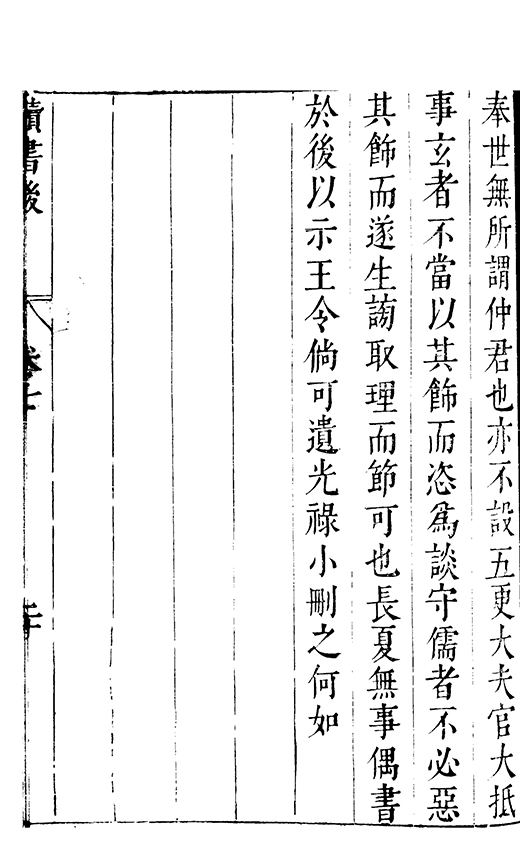 奉世無所謂仲君也亦不設五更大夫官大抵
事玄者不當以其飾而恣爲談守儒者不必惡
其飾而遂生謭取理而節可也長夏無事偶書
於後以示王令倘可遺光祿小刪之何如
讀書後
卷七
二十